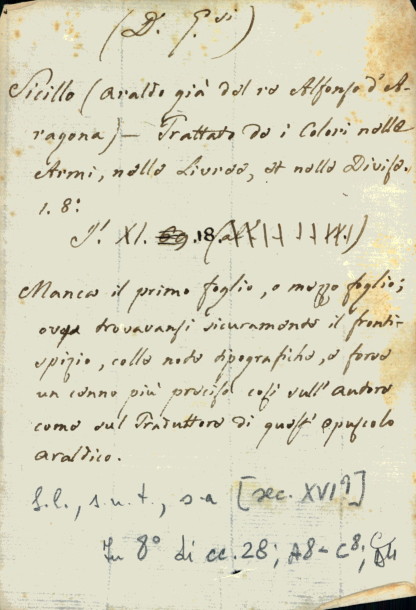 (D. G.si)
Sicillo (araldo già del re Alfonso d'A-
ragona) — Trattato de i Colori nelle
Armi, nelle Livree, et nelle Divise.
1. 8:
XI. 18.
Manca il primo foglio, o mezzo foglio;
ove trovavansi sicuramente il fronti-
spizio, colle note tipografiche, e forse
un cenno più preciso così sull'autore
come sul Traduttore di quest'opuscolo
araldico.
S.l., s.n.t., s.a [sec. XVI]
In 8° di cc. 28; A8-C8;